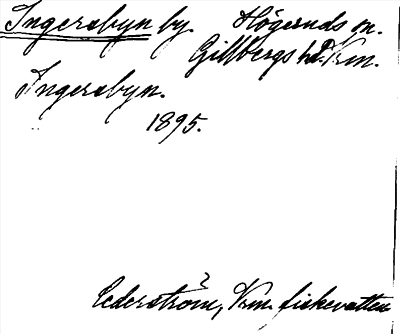 Ingersbyn by Högeruds sn.
Gillbergs hd. Vrm.
Ingersbyn.
1895.
Cederström, Vrm. fiskevatten